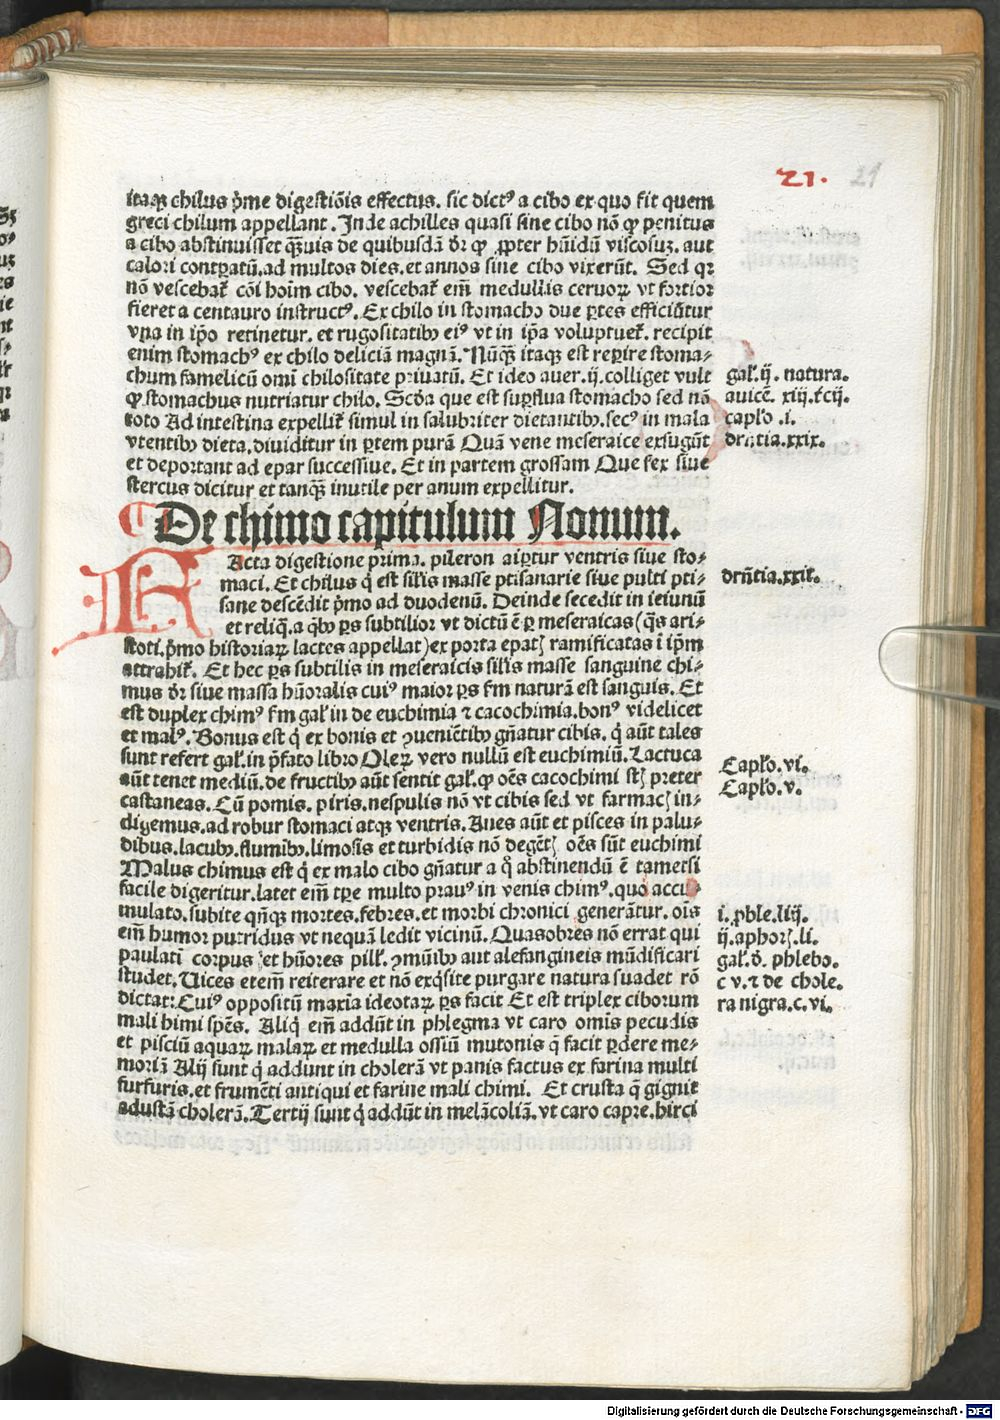 21.
21
itaqꝫ chilus p̄me digestiōis effectus. sic dictꝰ a cibo ex quo fit quem
greci chilum appellant. Inde achilles quasi sine cibo nō ꝙ penitus
a cibo abstinuisset qꝫuis de quibusdā dr̄ ꝙ ꝓpter hūidū viscosuꝫ. aut
calori contꝑatū. ad multos dies. et annos sine cibo vixerūt. Sed qꝛ
nō vescebat̄ cōi hoīm cibo. vescebat̄ em̄ medullis ceruoꝝ vt fortior
fieret a centauro instructꝰ. Ex chilo in stomacho due ꝑtes efficiūtur
vna in ip̄o retinetur. et rugositatibꝰ eiꝰ vt in ip̄a voluptuet̄. recipit
enim stomachꝰ ex chilo deliciā magnā. Nūqꝫ itaqꝫ est reꝑire stoma⸗
chum famelicū omī chilositate priuatū. Et ideo auer. ij. colliget vult
ꝙ stomachus nutriatur chilo. Scd̄a que est suꝑflua stomacho sed nō
toto Ad intestina expellit̄ simul in salubriter dietantibꝰ. secꝰ in mala
vtentibꝰ dieta. diuiditur in ꝑtem purā Quā vene meseraice exsugūt
et deportant ad epar successiue. Et in partem grossam Que fex siue
stercus dicitur et tanqꝫ inutile per anum expellitur.
gal̄. ij. natura.
auicē. xiij. t̄cij.
capl̓o .i.
dr̄ntia. xxix.
De chimo capitulum Nonum.
FActa digestione prima. pileron aiꝑtur ventris siue sto⸗
maci. Et chilus q̄ est sil̄is masse ptisanarie siue pulti pti⸗
sane descēdit p̄mo ad duodenū. Deinde secedit in ieiunū
et reliq̄. a qͥbꝰ ꝑs subtilior vt dictū ē ꝑ meseraicas (q̄s ari⸗
stoti. p̄mo historiaꝝ lactes appellat) ex porta epatꝭ ramificatas ī ip̄m
attrahit̄. Et hec ꝑs subtilis in meseraicis sil̄is masse sanguine chi⸗
mus dr̄ siue massa hūoralis cuiꝰ maior ꝑs f̄m naturā est sanguis. Et
est duplex chimꝰ f̄m gal̄ in de euchimia ⁊ cacochimia. bonꝰ videlicet
et malꝰ. Bonus est q̄ ex bonis et ꝯueniētibꝰ gn̄atur cibis. q̄ aūt tales
sunt refert gal̄. in p̄fato libro Oleꝝ vero nullū est euchimiū. Lactuca
aūt tenet mediū. de fructibꝰ aūt sentit gal̄. ꝙ oēs cacochimi st̄ꝭ preter
castaneas. Cū pomis. piris. nespulis nō vt cibis sed vt farmacꝭ in⸗
digemus. ad robur stomaci atqꝫ ventris. Aues aūt et pisces in palu⸗
dibus. lacubꝰ. flumibꝰ. limosis et turbidis nō degētꝭ oēs sūt euchimi
Malus chimus est q̄ ex malo cibo gn̄atur a qͦ abstinendū ē tametsi
facile digeritur. latet em̄ tꝑe multo prauꝰ in venis chimꝰ. quo accu⸗
mulato. subite qn̄qꝫ mortes. febres. et morbi chronici generātur. oīs
em̄ humor putridus vt nequā ledit vicinū. Quasobres nō errat qui
paulati corpus et hūores pill̄. ꝯmūibꝰ aut alefangineis mūdificari
studet. Uices etem̄ reiterare et nō exq̄site purgare natura suadet rō
dictat: Cuiꝰ oppositū maxīa ideotaꝝ ꝑs facit Et est triplex ciborum
mali himi spēs. Aliq̄ em̄ addūt in phlegma vt caro omīs pecudis
et pisciū aquaꝝ malaꝝ et medulla ossiū mutonis q̄ facit ꝑdere me⸗
moriā Alij sunt q̄ addunt in cholerā vt panis factus ex farina multi
furfuris. et frumēti antiqui et farine mali chimi. Et crusta q̄ gignit
adustā cholerā. Tertij sunt q̄ addūt in melācoliā. vt caro capre. hirci
dr̄ntia. xxiꝭ.
Capl̓o. vi.
Capl̓o. v.
i. phle. liij.
ij. aphorꝭ. li.
gal̄. d̄. phlebo.
c v. ⁊ de chole.
ra nigra. c. vi.
Digitalisierung gefördert durch die Deutsche Forschungsgemeinschaft - DFG